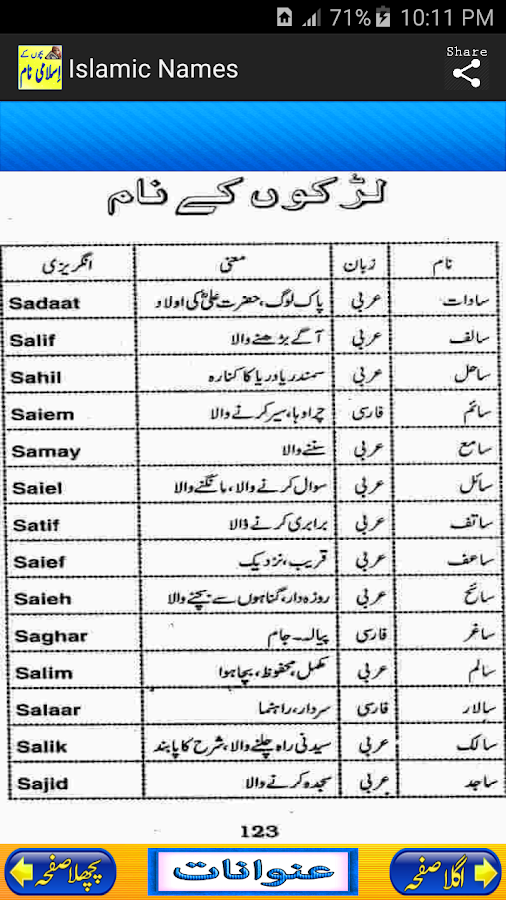 71% 10:11 PM
بچوں کے
اسلامی نام
Islamic Names
Share
لڑکوں کے نام
نام زبان معنی انگریزی
سادات عربی پاک لوگ، حضرت علیؓ کی اولاد Sadaat
سالف عربی آگے بڑھنے والا Salif
ساحل عربی سمندر یا دریا کا کنارہ Sahil
سائم فارسی چرواہا، سیر کرنے والا Saiem
سامع عربی سننے والا Samay
سائل عربی سوال کرنے والا، مانگنے والا Saiel
ساتف عربی برابری کرنے والا Satif
ساعف عربی قریب، نزدیک Saief
سائح عربی روزہ دار، گناہوں سے بچنے والا Saieh
ساغر فارسی پیالہ۔ جام Saghar
سالم عربی مکمل، محفوظ، بچا ہوا Salim
سالار فارسی سردار، راہنما Salaar
سالک عربی سیدنی راہ چلنے والا، شرح کا پابند Salik
ساجد عربی سجدہ کرنے والا Sajid
123
اگلا صفحہ عنوانات پچھلا صفحہ